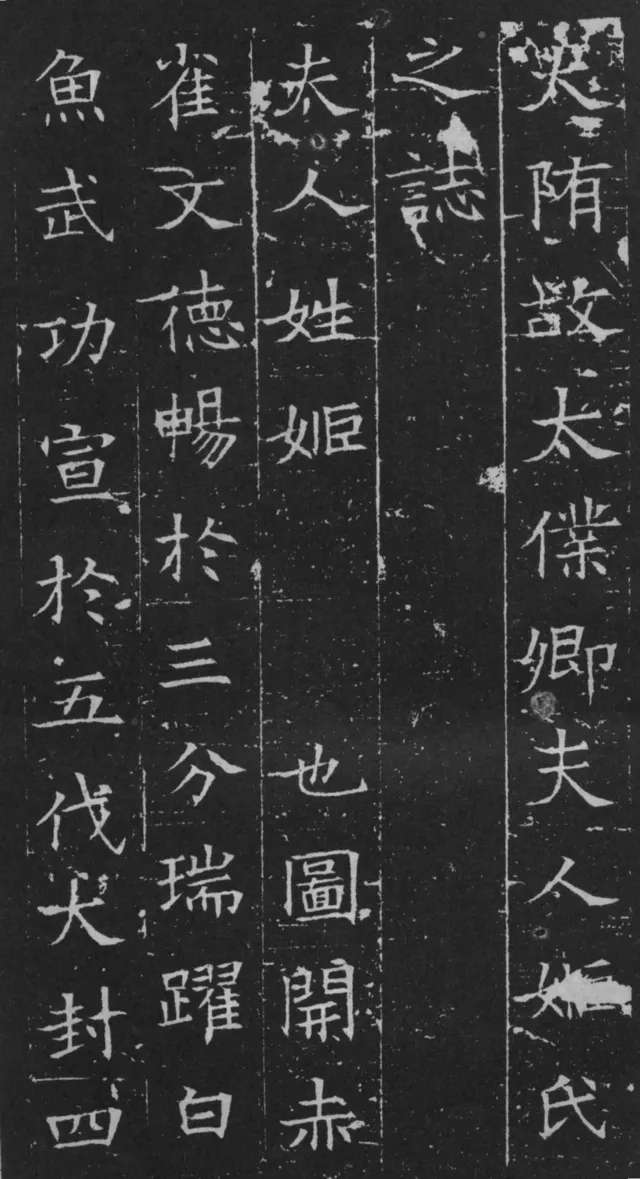 大陏故太僕卿夫人姬氏
之誌
夫人姓姬也圖開赤
雀文德暢於三分瑞躍白
魚武功宣於五伐大封四